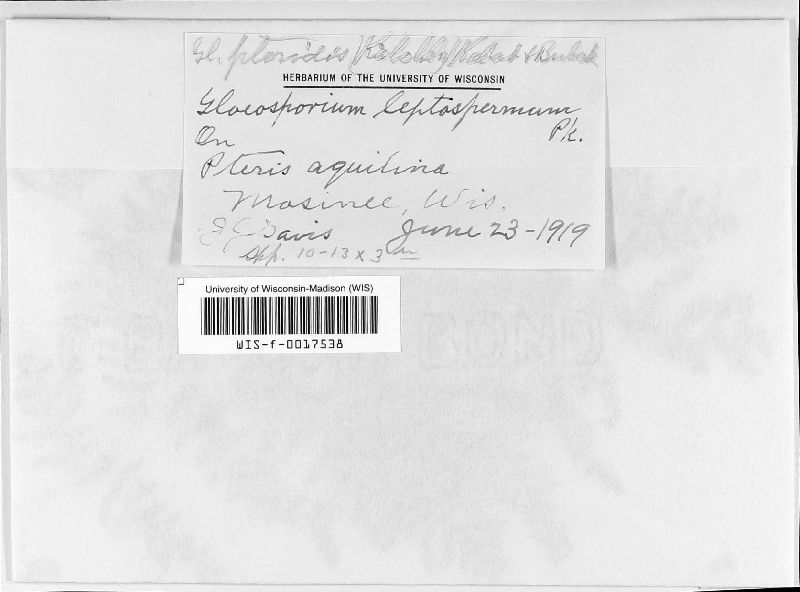 Gl. pteridis (Kalchb.) Kabat & Bubak
HERBARIUM OF THE UNIVERSITY OF WISCONSIN
Gloeosporium leptospermum
Pk.
On
Pteris aquilina
Mosinee, Wis.
J J Davis June 23-1919
Spp. 10-13 x 3
University of Wisconsin-Madison (WIS)
WIS-f-0017538